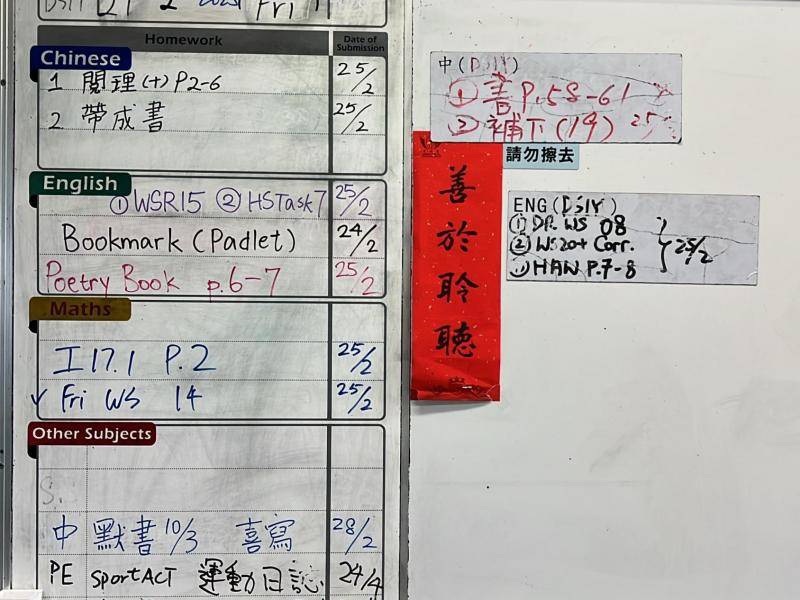 21 2 2025 Fri
Homework Date of Submission
Chinese
1 閱理(十)P2-6 25/2
2 帶成書 25/2
English
① WSR15 ② HSTask7 25/2
Bookmark (Padlet) 24/2
Poetry Book p.6-7 25/2
Maths
工17.1 P.2 25/2
✓ Fri WS 14 25/2
Other Subjects
S.
中 默書10/3 喜寫 28/2
PE SportACT 運動日誌 24/4
中(DSIY)
① 書 P.58-61
② 補下(19) 25
請勿擦去
善於聆聽
ENG (DSIY)
① DP. WS 08
② WS20+ Corr. } 25/2
HAN P.7-8